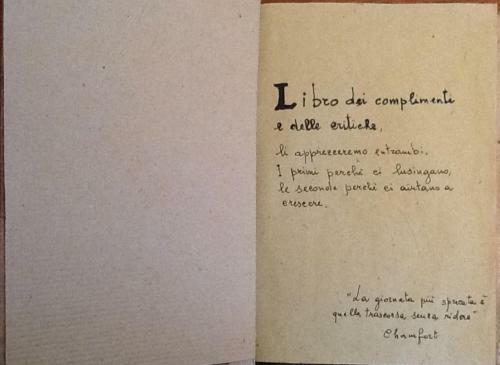 Libro dei complimenti
e delle critiche,
li apprezzeremo entrambi.
I primi perché ci lusingano,
le seconde perché ci aiutano a
crescere.
"La giornata più sprecata è
quella trascorsa senza ridere"
Chamfort